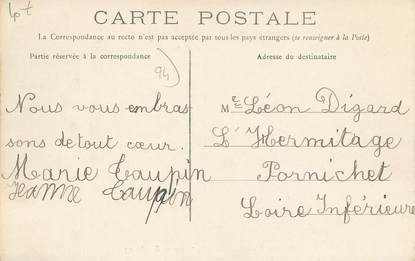 4t
CARTE POSTALE
La Correspondance au recto n'est pas acceptée par tous les pays étrangers (se renseigner à la Poste)
Partie réservée à la correspondance
Adresse du destinataire
94
Nous vous embras
sons de tout cœur.
Marie Taupin
Jeanne Taupin
Léon Digard
L'Hermitage
Pornichet
Loire Inférieure